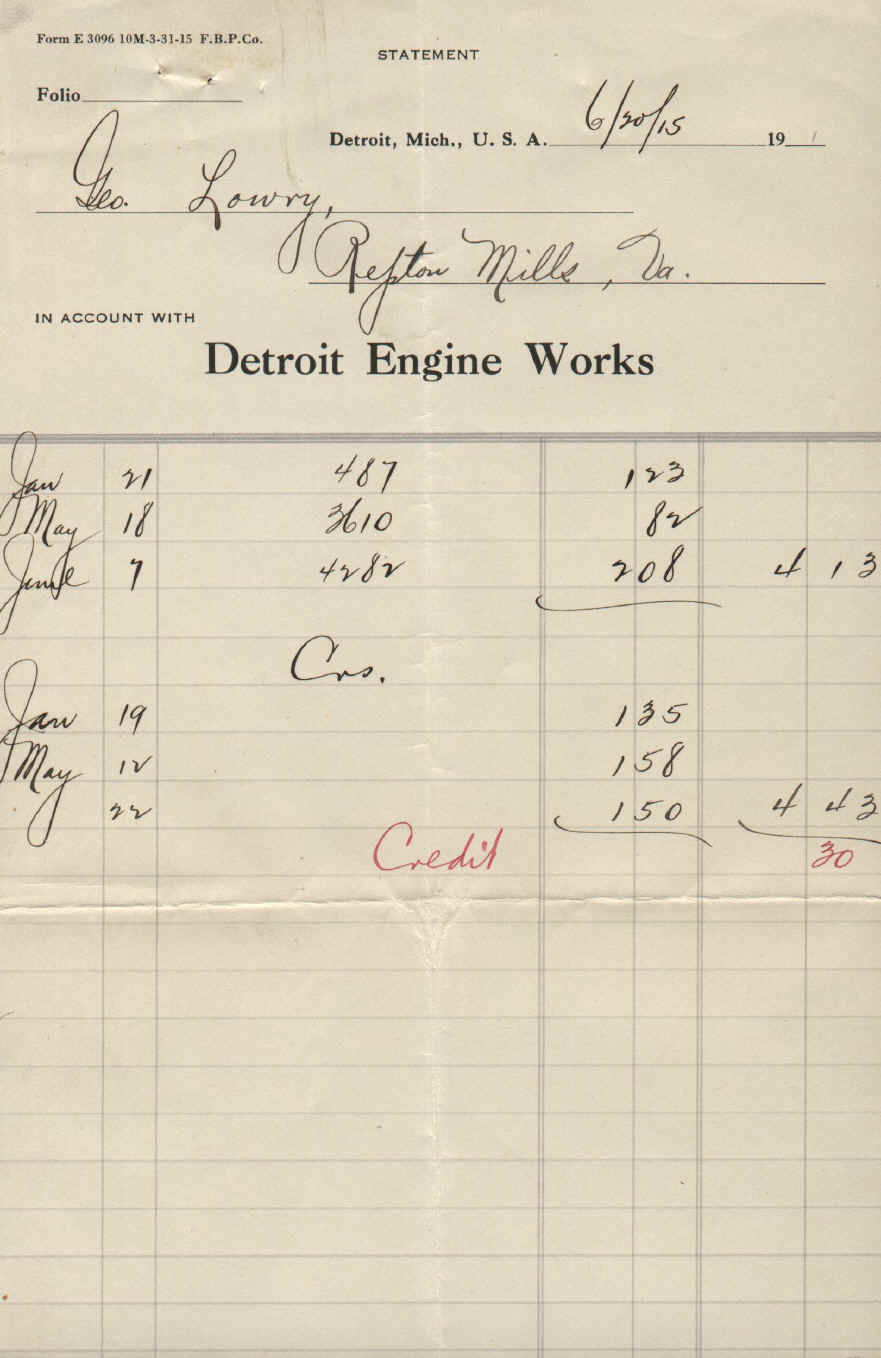 Form E 3096 10M-3-31-15 F.B.P.Co.
STATEMENT
Folio
Detroit, Mich., U. S. A. 6/20/15 191
Geo. Lowry,
Repton Mills, Va.
IN ACCOUNT WITH
Detroit Engine Works
Jan 21 487 1 23
May 18 3610 82
June 7 4282 2 08 4 13
Crs.
Jan 19 1 35
May 12 1 58
22 1 50 4 43
Credit 30